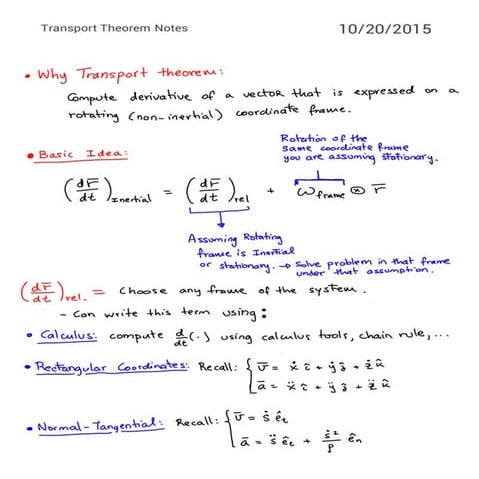 Transport Theorem Notes 10/20/2015
• Why Transport theorem:
Compute derivative of a vector that is expressed on a
rotating (non-inertial) coordinate frame.
• Basic Idea:
Rotation of the
same coordinate frame
you are assuming stationary.
(dr̅/dt)Inertial = (dr̅/dt)rel + ω̅frame ⊗ r̅
Assuming Rotating
frame is Inertial
or stationary. → Solve problem in that frame
under that assumption.
(dr̅/dt)rel. = Choose any frame of the system.
- Can write this term using:
• Calculus: compute d/dt(·) using calculus tools, chain rule,...
• Rectangular Coordinates: Recall: { v̅ = ẋ î + ẏ ĵ + ż k̂
a̅ = ẍ î + ÿ ĵ + z̈ k̂
• Normal-Tangential: Recall: { v̅ = ṡ êt
a̅ = s̈ êt + ṡ²/ρ ên